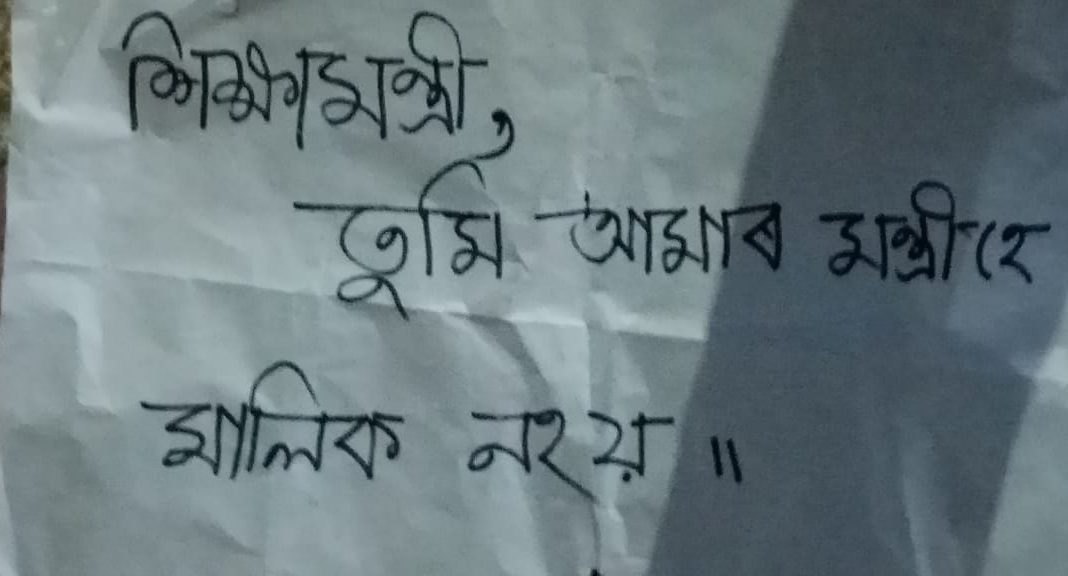 শিক্ষামন্ত্ৰী,
তুমি আমাৰ মন্ত্ৰীহে
মালিক নহয় ॥